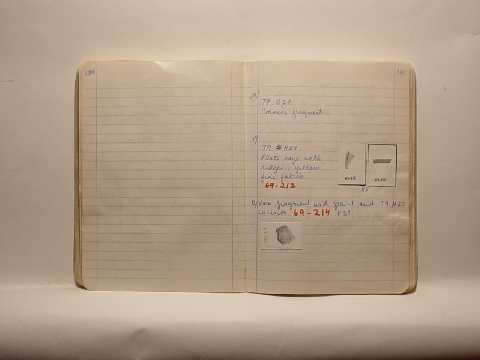 T9 G24
Corner fragment
19)
T9 H24
Plate edge with
ridge; yellow
fine fabric
69-212
Vase fragment with paint and T9 H25
incision 69-214 FS1